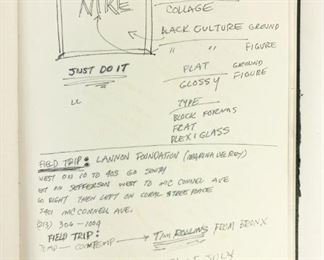 NIKE
COLLAGE
BLACK CULTURE GROUND
" " FIGURE
JUST DO IT
FLAT GROUND
GLOSSY FIGURE
TYPE
BLOCK FORMS
FLAT
PLEXIGLASS
FIELD TRIP: LANNON FOUNDATION (MARINA DEL REY)
WEST ON 10 TO 405 GO SOUTH
ON JEFFERSON WEST TO MC CONNEL AVE
GO RIGHT THEN LEFT ON CORAL TREE PLACE
5401 MC CONNELL AVE.
(213) 306-1004
FIELD TRIP:
TIM ROLLINS FROM BRONX